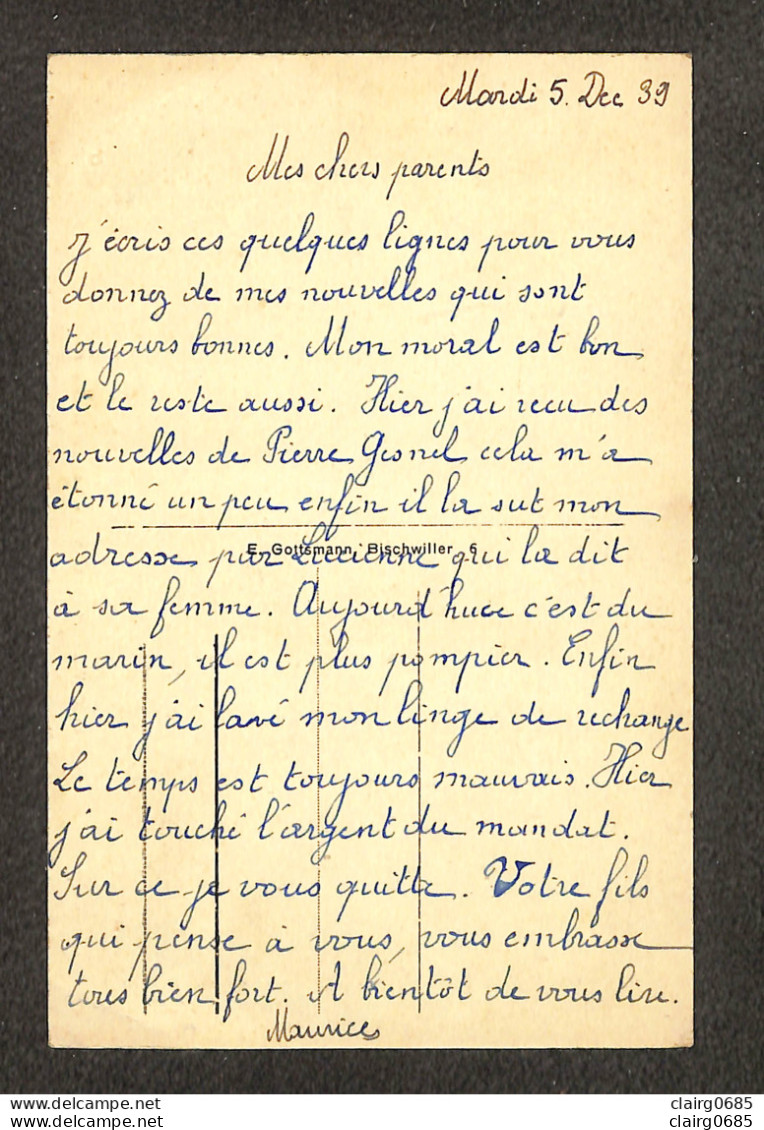 Mardi 5. Dec 39
Mes chers parents
J'écris ces quelques lignes pour vous
donnez de mes nouvelles qui sont
toujours bonnes. Mon moral est bon
et le reste aussi. Hier j'ai recu des
nouvelles de Pierre Gesnel cela m'a
étonné un peu enfin il la sut mon
E. Gottsmann, Bischwiller 6
adresse par Lucienne qui la dit
à sa femme. Aujourd'huee c'est du
marin, il est plus pompier. Enfin
hier j'ai lavé mon linge de rechange
Le temps est toujours mauvais. Hier
j'ai touché l'argent du mandat.
Sur ce je vous quitte. Votre fils
qui pense à vous, vous embrasse
tous bien fort. A bientôt de vous lire.
Maurice
www.delcampe.net
www.delcampe.net
clairg0685
clairg0685